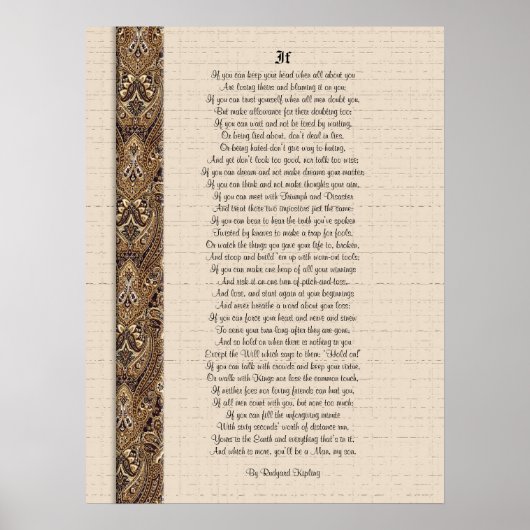 If
If you can keep your head when all about you
Are losing theirs and blaming it on you;
If you can trust yourself when all men doubt you,
But make allowance for their doubting too:
If you can wait and not be tired by waiting,
Or being lied about, don't deal in lies,
Or being hated don't give way to hating,
And yet don't look too good, nor talk too wise;
If you can dream and not make dreams your master;
If you can think and not make thoughts your aim,
If you can meet with Triumph and Disaster
And treat those two impostors just the same:
If you can bear to hear the truth you've spoken
Twisted by knaves to make a trap for fools,
Or watch the things you gave your life to, broken,
And stoop and build 'em up with worn-out tools;
If you can make one heap of all your winnings
And risk it on one turn of pitch-and-toss,
And lose, and start again at your beginnings
And never breathe a word about your loss:
If you can force your heart and nerve and sinew
To serve your turn long after they are gone,
And so hold on when there is nothing in you
Except the Will which says to them: "Hold on!"
If you can talk with crowds and keep your virtue,
Or walk with Kings nor lose the common touch,
If neither foes nor loving friends can hurt you,
If all men count with you, but none too much:
If you can fill the unforgiving minute
With sixty seconds' worth of distance run,
Yours is the Earth and everything that's in it,
And which is more, you'll be a Man, my son.
By Rudyard Kipling